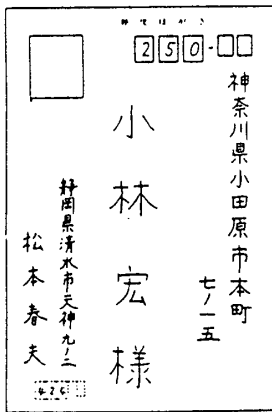 郵便はがき
250-
神奈川県小田原市本町
七ノ一五
小林宏様
静岡県清水市天神九ノ二
松本春夫
424